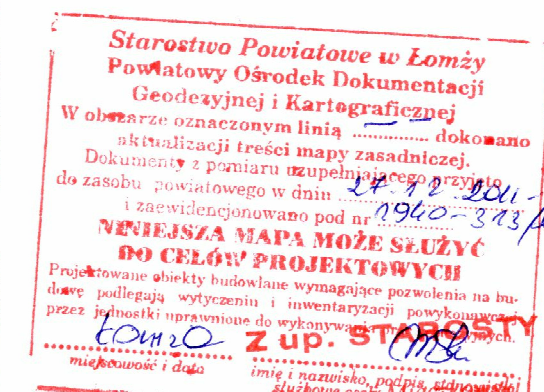 Starostwo Powiatowe w Łomży
Powiatowy Ośrodek Dokumentacji
Geodezyjnej i Kartograficznej
W obszarze oznaczonym linią — — dokonano
aktualizacji treści mapy zasadniczej.
Dokumenty z pomiaru uzupełniającego przyjęto
do zasobu powiatowego w dniu 27.12.2011
i zaewidencjonowano pod nr 1940-313/
NINIEJSZA MAPA MOŻE SŁUŻYĆ
DO CELÓW PROJEKTOWYCH
Projektowane obiekty budowlane wymagające pozwolenia na bu-
dowę podlegają wytyczeniu i inwentaryzacji powykonawczej
przez jednostki uprawnione do wykonywania
Łomża Z up. STAROSTY
miejscowość i data
imię i nazwisko, podpis, stanowisko